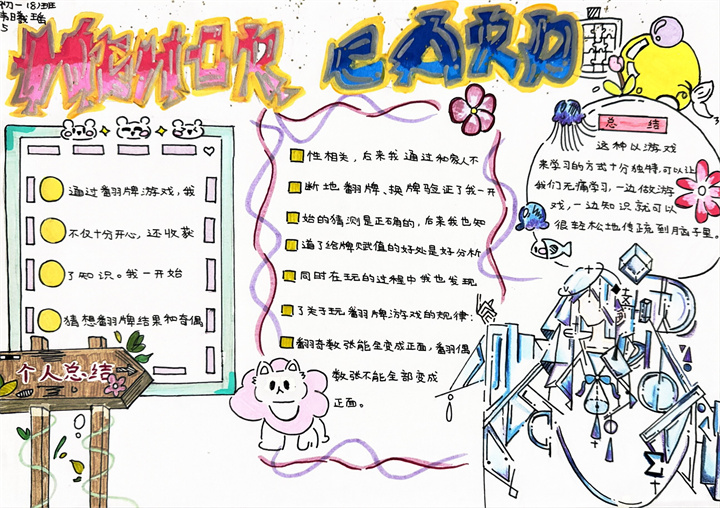 初一(8)班
5
MEMOR CARD
通过翻牌游戏，我
不仅十分开心，还收获
了知识。我一开始
猜想翻牌结果和奇偶
个人总结
性相关，后来我通过和家人不
断地翻牌、换牌验证了我一开
始的猜测是正确的，后来我也知
道了给牌赋值的好处是好分析
同时在玩的过程中我也发现
了关于玩翻牌游戏的规律：
翻奇数张能全变成正面，翻偶
数张不能全部变成
正面。
总结
这种以游戏
来学习的方式十分独特，可以让
我们无痛学习，一边做游
戏，一边知识就可以
很轻松地传疏到脑子里。